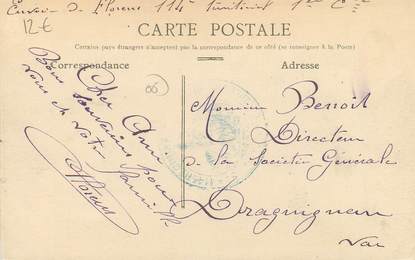 Envoi de Florens 114e territorial 1ère Cie
12-€
CARTE POSTALE
Certains pays étrangers n'acceptent pas la correspondance de ce côté (se renseigner à la Poste)
Correspondance
Adresse
66
Cher Ami
Bons souvenirs pour
vous et votre famille
Florens
Monsieur Benoit
Directeur
de la Société Générale
Draguignan
Var